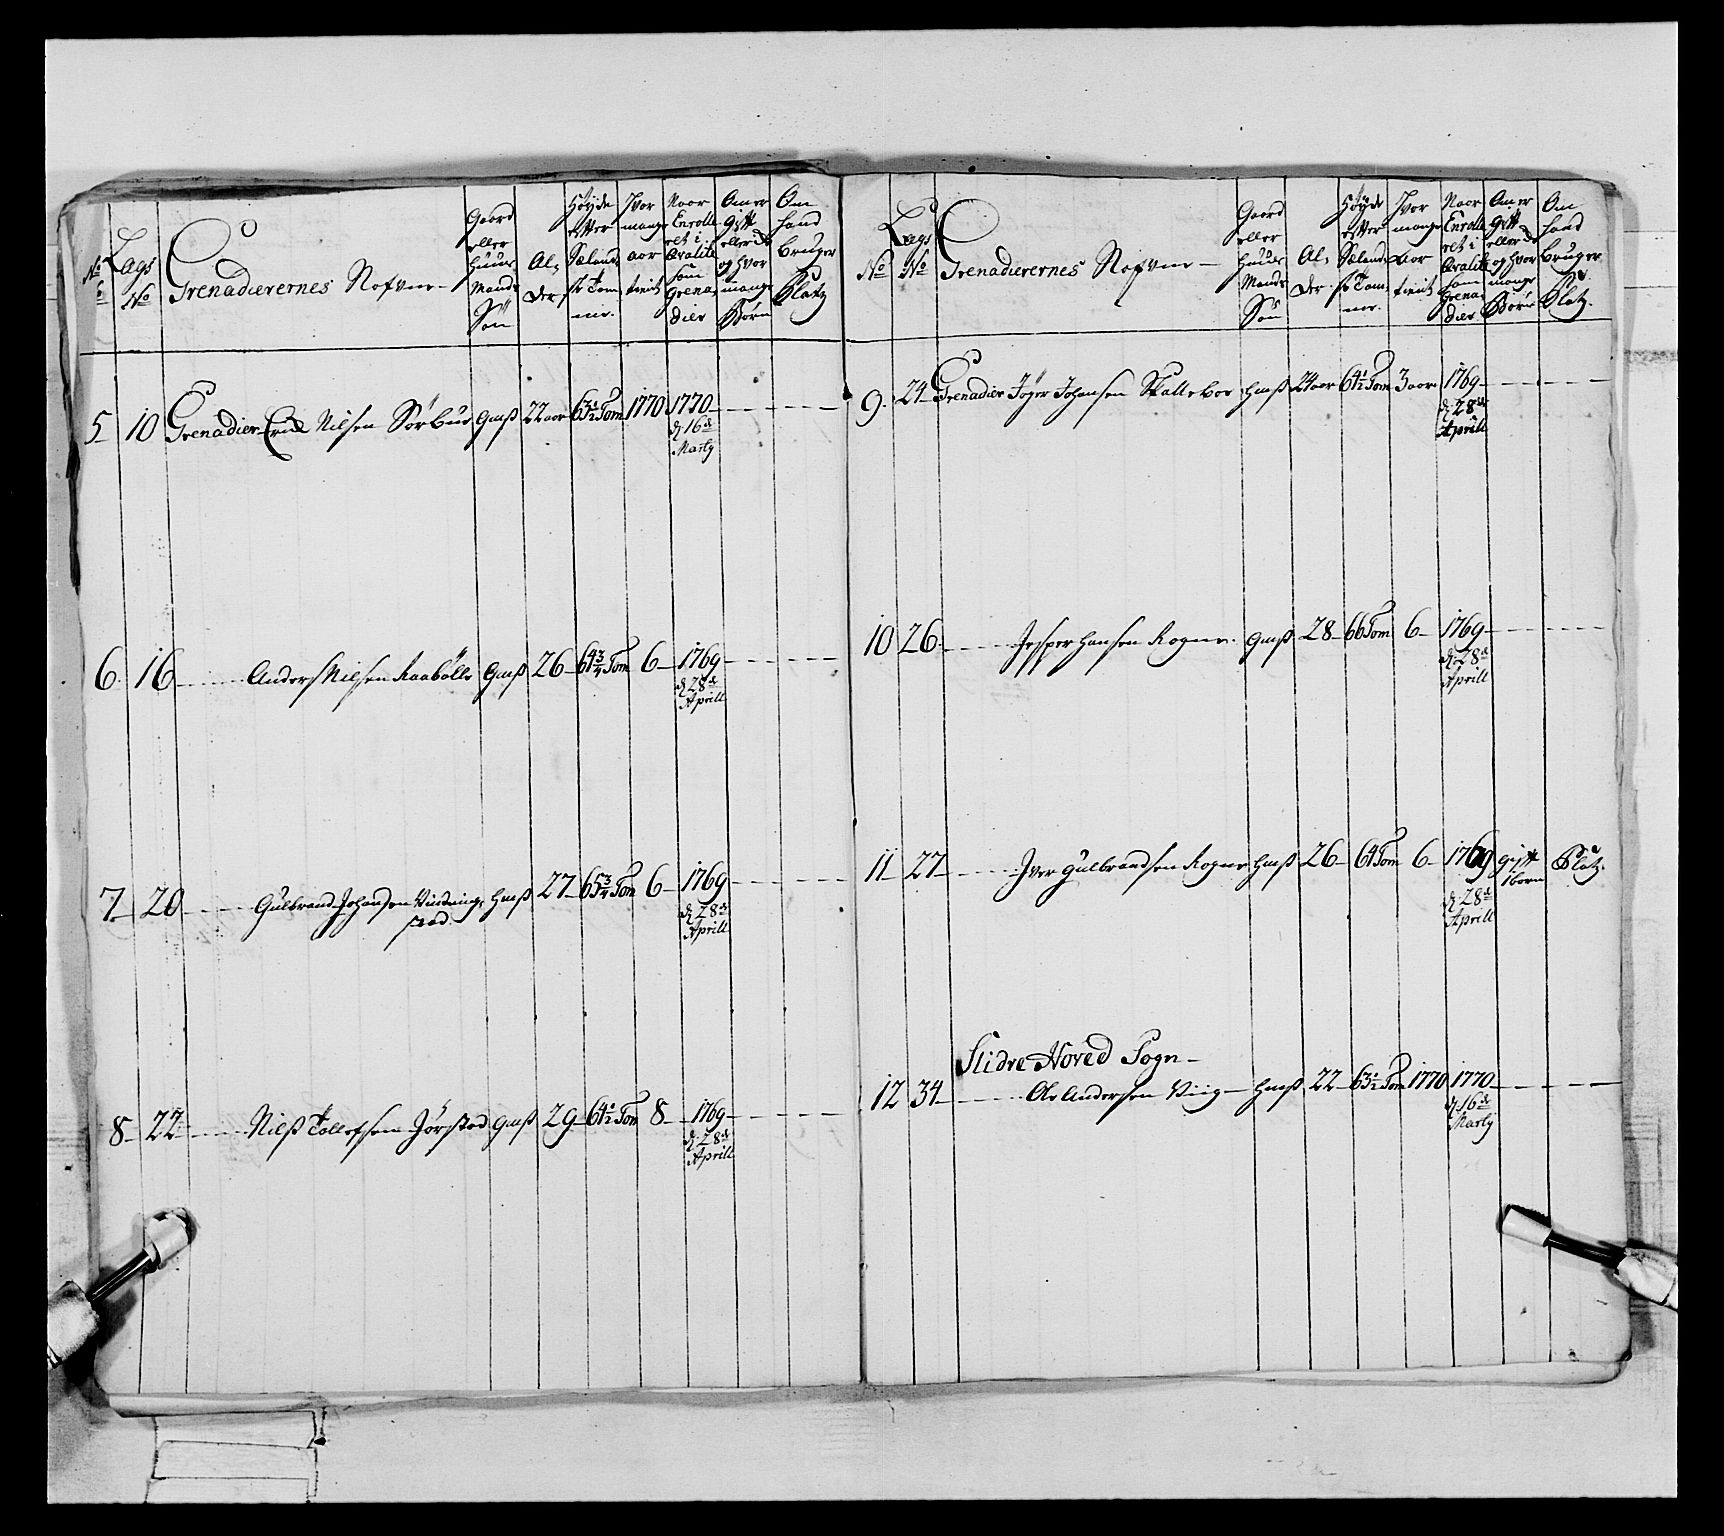 No Lags No Grenadierernes Nafvne Gaard eller Huus Mands Søn Al- der Høyde efter Sælands. Tom- me. Hvor mange aar tient Naar Enrolle- ret i Qvalite som Grena- dier Om er Gift eller ei og hvor mange Børn Om hand bruger Platz
5 10 Grenadier Nilsen Sørbue Gmß 22 aar 63½ Tom 1770 1770
d. 16de
Marty
6 16 Anders Nilsen Raabølle Gmß 26 64¾ Tom 6 1769
d. 28de
Aprill
7 20 Gulbrand Johansen Vindinge Hmß 27 65¾ Tom 6 1769
stad d. 28de
Aprill
8 22 Nilß Tollefsen Jørstad Gmß 29 64½ Tom 8 1769
d. 28de
Aprill
No Lags No Grenadierernes Nafvne Gaard eller Huus Mands Søn Al- der Høyde efter Sælands. Tom- me. Hvor mange Aar tient Naar Enrolle- ret i Qvalite som Grena- dier Om er Gift eller ei og hvor mange Børn Om hand bruger Platz.
9 24 Grenadier Johansen Skatteboe Hmß 24 aar 64½ Tom 3 aar 1769
d. 28de
Aprill
10 26 Jesper Hansen Rogne Gmß 28 66 Tom 6 1769
d. 28de
Aprill
11 27 Iver Gulbrandsen Rogne Hmß 26 64 Tom 6 1769 gift Platz.
d. 28de 1 børn
Aprill
Slidre Hoved Sogn
12 34 Ole Andersen Viig Hmß 22 63½ Tom 1770 1770
d. 16de
Marty